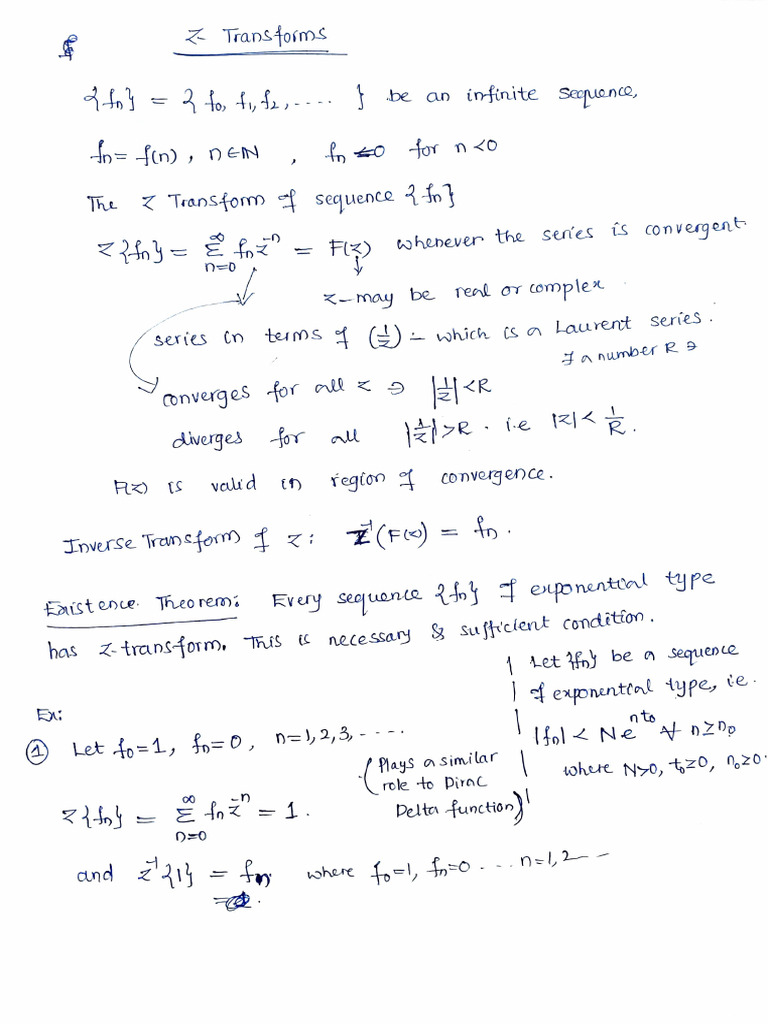 Z- Transforms
{fn} = { f0, f1, f2, .... } be an infinite sequence,
fn = f(n), n∈ℕ , fn = 0 for n<0
The Z Transform of sequence {fn}
Z{fn} = ∑_{n=0}^{∞} fn z^{-n} = F(z) whenever the series is convergent.
z - may be real or complex
series in terms of (1/z) :- which is a Laurent series.
∃ a number R ∋
converges for all z ∋ |1/z| < R
diverges for all |1/z| > R . i.e |z| < 1/R.
F(z) is valid in region of convergence.
Inverse Transform of z: Z^{-1}(F(z)) = fn.
Existence Theorem: Every sequence {fn} of exponential type
has z-transform. This is necessary & sufficient condition.
Let {fn} be a sequence
of exponential type, i.e.
|fn| < N e^{nt0} ∀ n≥n0
where N>0, t0≥0, n0≥0.
Ex:
① Let f0=1, fn=0, n=1,2,3,....
(Plays a similar
role to Dirac
Delta function)
Z{fn} = ∑_{n=0}^{∞} fn z^{-n} = 1.
and z^{-1}{1} = fn. where f0=1, fn=0 ... n=1,2 --